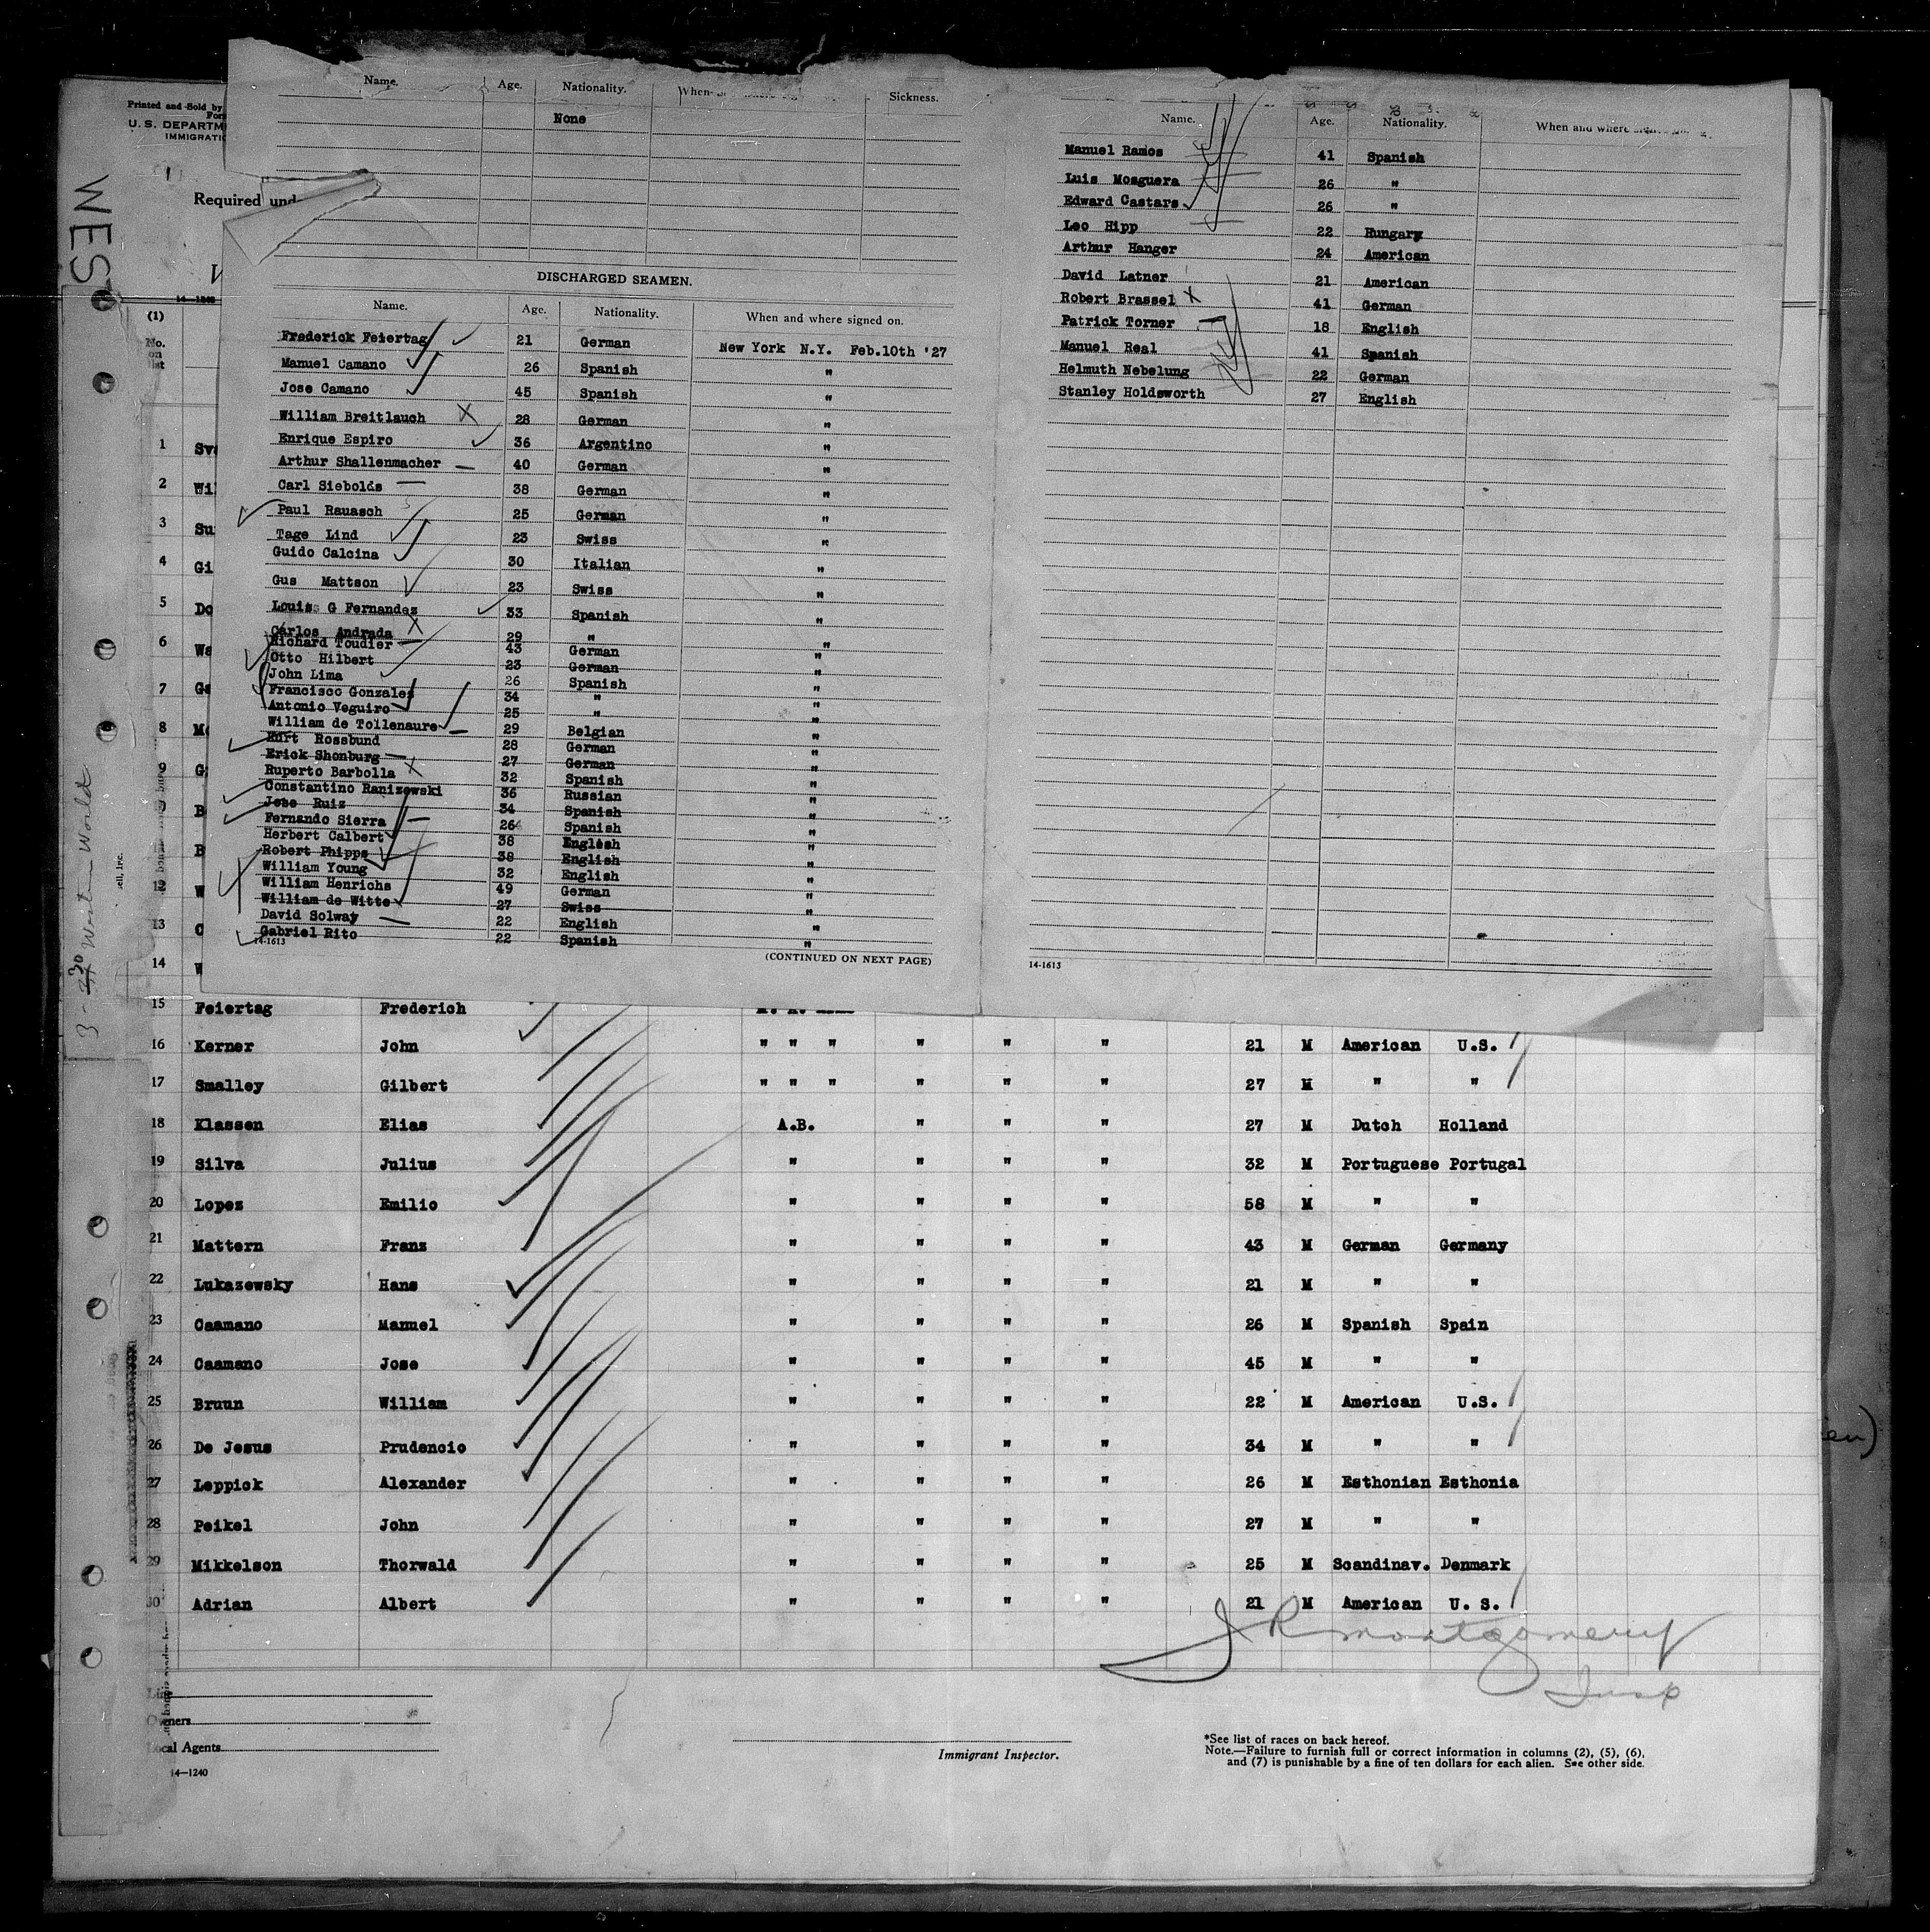 Name. Age. Nationality. When Sickness.
None
DISCHARGED SEAMEN.
Name. Age. Nationality. When and where signed on.
Frederick Feiertag 21 German New York N.Y. Feb.10th '27
Manuel Camano 26 Spanish "
Jose Camano 45 Spanish "
William Breitlauch 28 German "
Enrique Espiro 36 Argentino "
Arthur Shallenmacher 40 German "
Carl Siebolds 38 German "
Paul Rauasch 25 German "
Tage Lind 23 Swiss "
Guido Calcina 30 Italian "
Gus Mattson 23 Swiss "
Louis G Fernandez 33 Spanish "
Carlos Andrada 29 " "
Richard Toudier 43 German "
Otto Hilbert 23 German "
John Lima 26 Spanish "
Francisco Gonzales 34 " "
Antonio Veguiro 25 " "
William de Tollenaure 29 Belgian "
Kurt Rossbund 28 German "
Erick Shonburg 27 German "
Ruperto Barbolla 32 Spanish "
Constantino Ranizewski 36 Russian "
Jose Ruiz 34 Spanish "
Fernando Sierra 26 Spanish "
Herbert Calbert 38 English "
Robert Phipps 38 English "
William Young 32 English "
William Henrichs 49 German "
William de Witte 27 Swiss "
David Solway 22 English "
Gabriel Rito 22 Spanish "
14-1613
(CONTINUED ON NEXT PAGE)
Name. Age. Nationality. When and where
Manuel Ramos 41 Spanish
Luis Mosguera 26 "
Edward Castars 26 "
Leo Hipp 22 Hungary
Arthur Hanger 24 American
David Latner 21 American
Robert Brassel 41 German
Patrick Torner 18 English
Manuel Real 41 Spanish
Helmuth Nebelung 22 German
Stanley Holdsworth 27 English
14-1613
Printed and Sold by
U. S. DEPARTM
IMMIGRATI
Required und
WES
(1)
No.
on
list
1 Sv
2 Wil
3 Su
4 Gi
5 Do
6 Wa
7 Ga
8 Mc
9 G
B
B
12 W
13 C
14 W
3-30 Western World
15 Feiertag Frederich
16 Kerner John " " " " " " 21 M American U.S.
17 Smalley Gilbert " " " " " " 27 M " "
18 Klassen Elias A.B. " " " 27 M Dutch Holland
19 Silva Julius " " " " 32 M Portuguese Portugal
20 Lopez Emilio " " " " 58 M " "
21 Mattern Franz " " " " 43 M German Germany
22 Lukazewsky Hans " " " " 21 M " "
23 Caamano Manuel " " " " 26 M Spanish Spain
24 Caamano Jose " " " " 45 M " "
25 Bruun William " " " " 22 M American U.S.
26 De Jesus Prudencio " " " " 34 M " "
27 Leppick Alexander " " " " 26 M Esthonian Esthonia
28 Peikel John " " " " 27 M " "
29 Mikkelson Thorwald " " " " 25 M Scandinav. Denmark
30 Adrian Albert " " " " 21 M American U. S.
J R Montgomery
Insp
Owners
Local Agents
14—1240
Immigrant Inspector.
*See list of races on back hereof.
Note.—Failure to furnish full or correct information in columns (2), (5), (6),
and (7) is punishable by a fine of ten dollars for each alien. See other side.